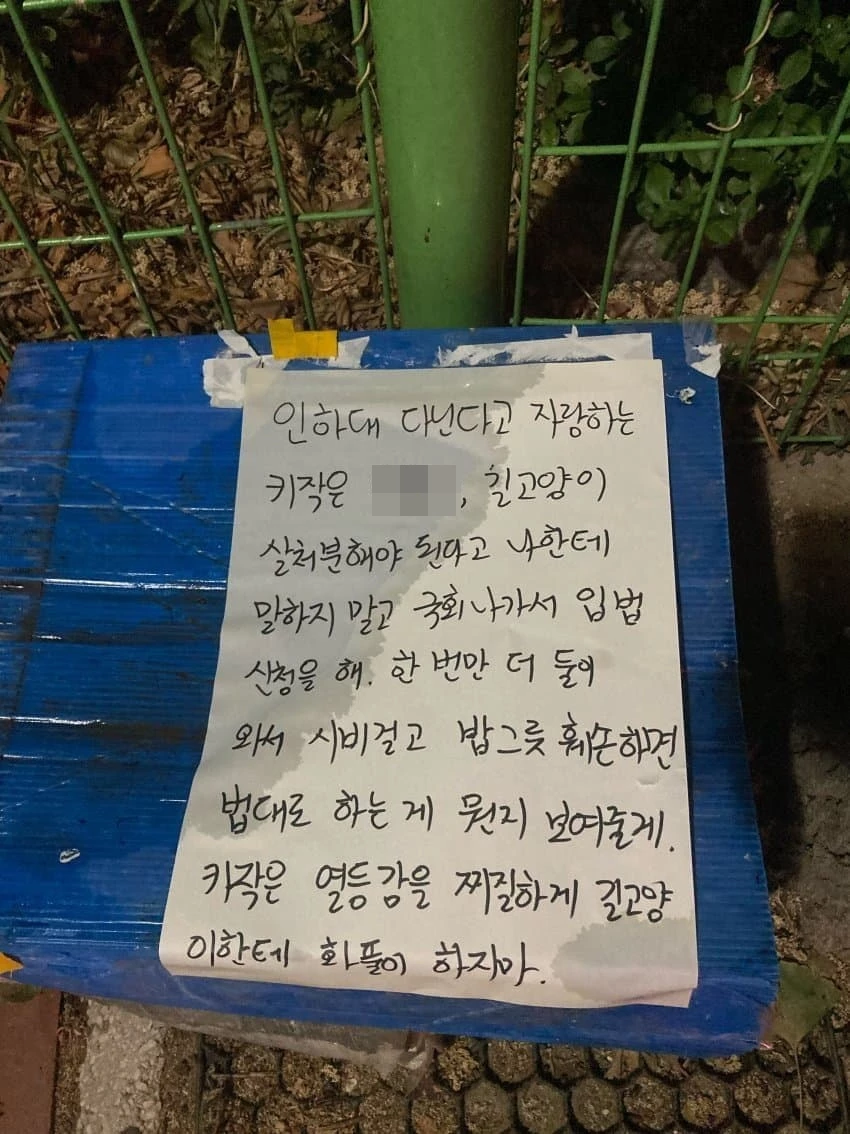 인하대 다닌다고 자랑하는
키작은 , 길고양이
살처분해야 된다고 나한테
말하지 말고 국회나가서 입법
신청을 해. 한 번만 더 둘이
와서 시비걸고 밥그릇 훼손하면
법대로 하는 게 뭔지 보여줄게.
키작은 열등감을 찌질하게 길고양
이한테 화풀이 하지마.